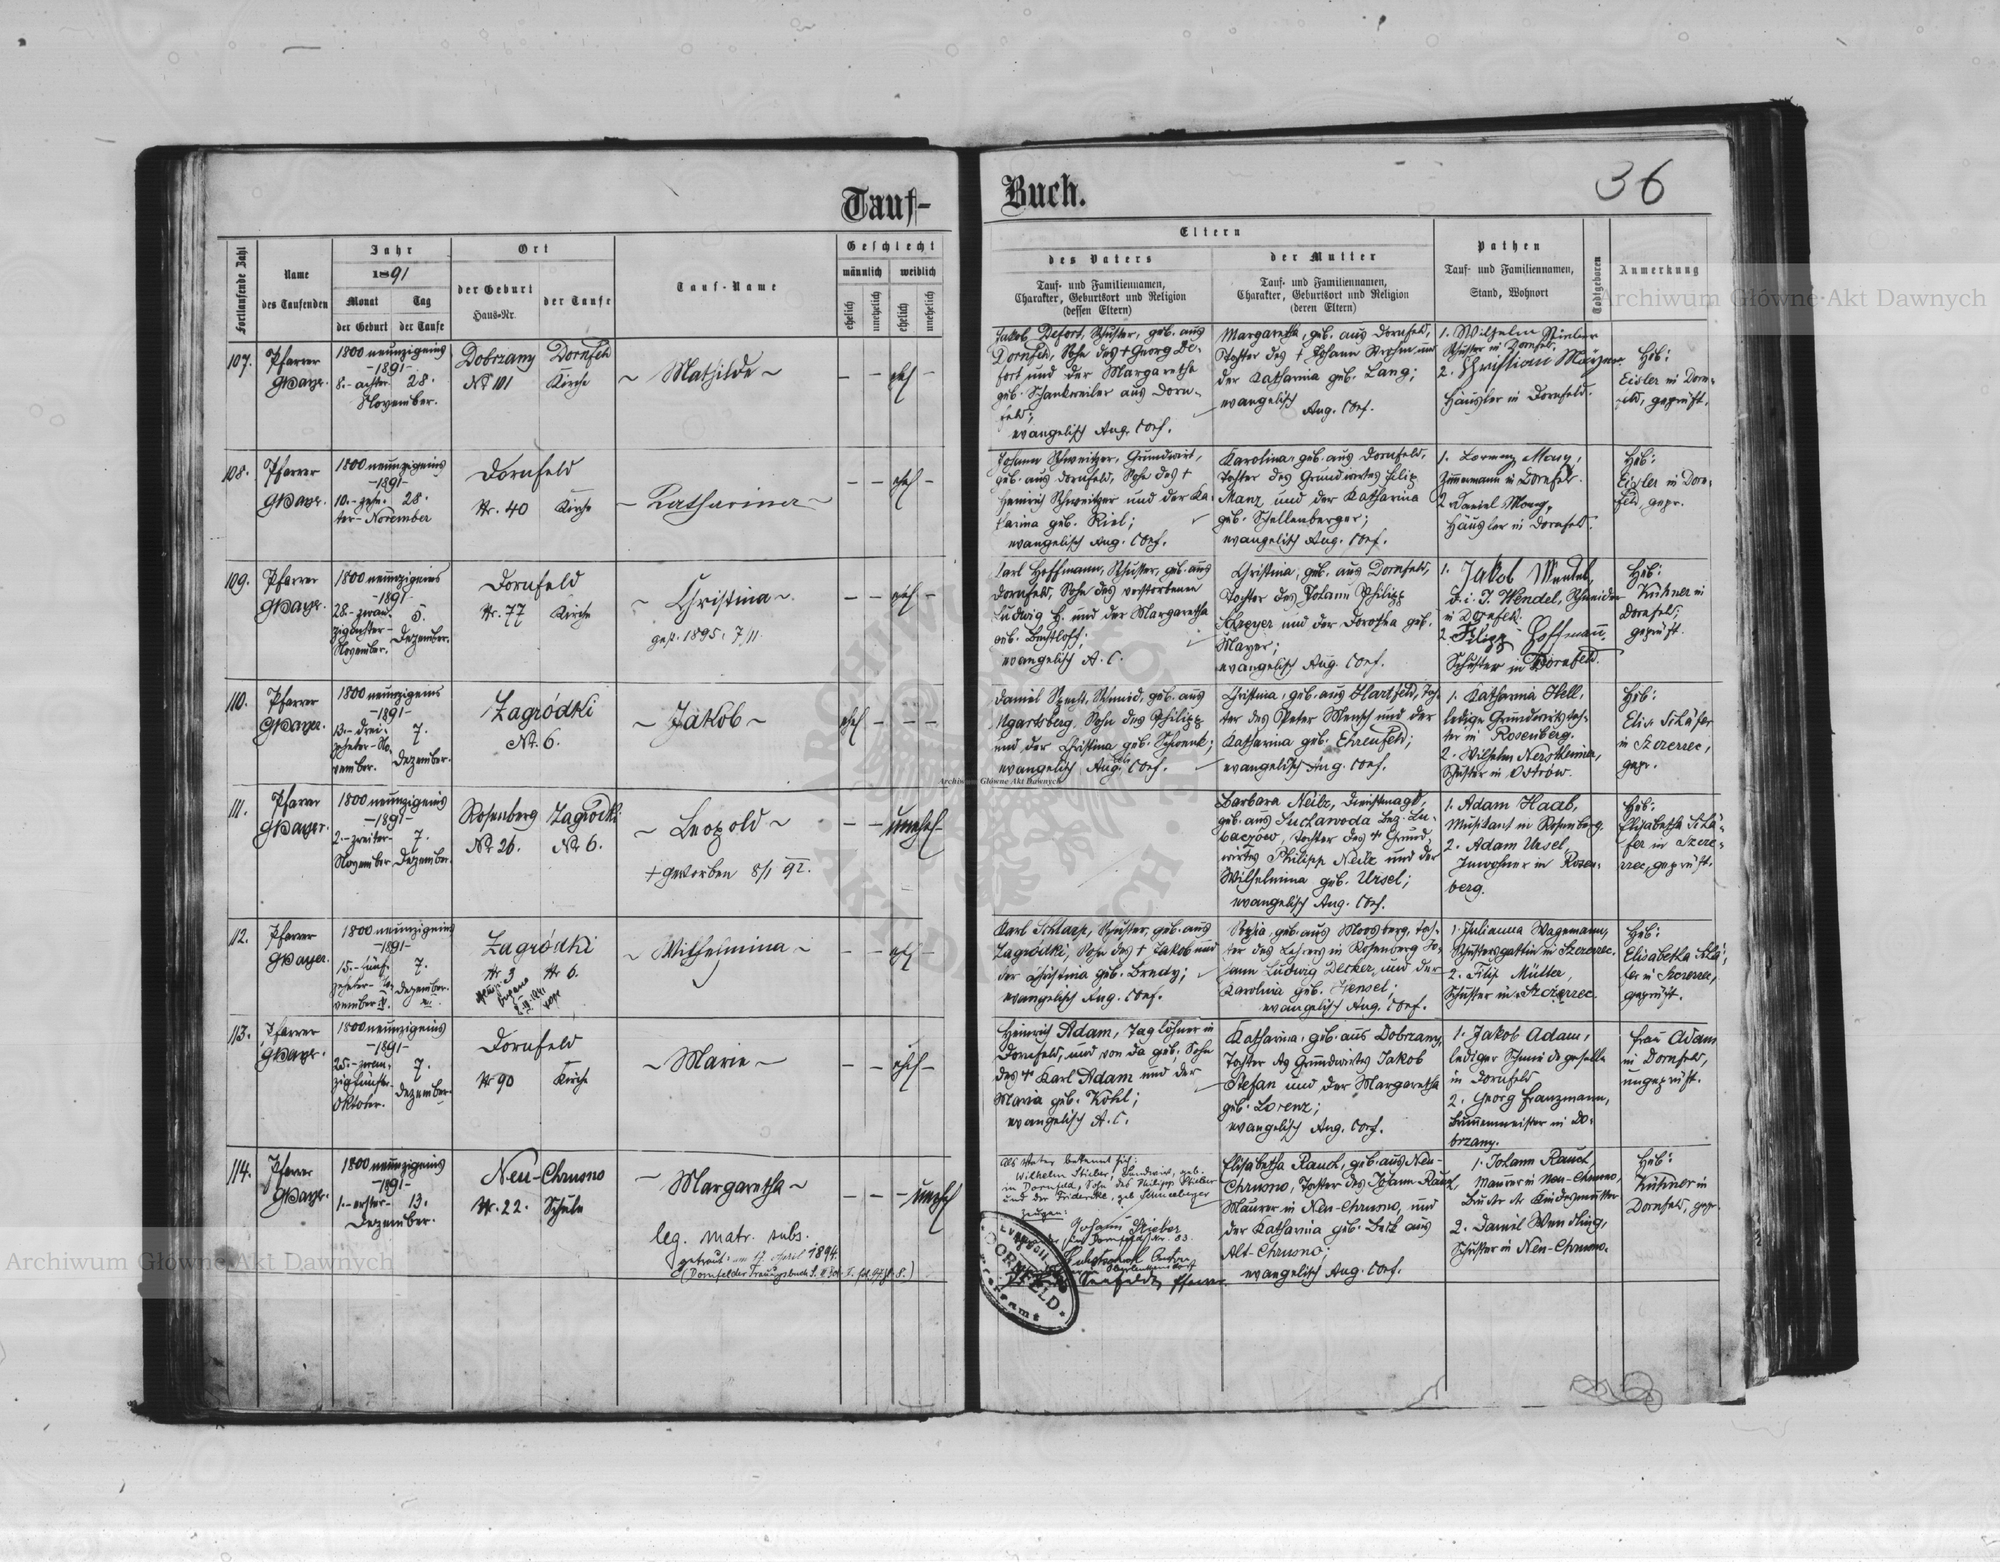 36
Tauf-Buch.
Fortlaufende Zahl
Name
des Taufenden
Jahr
1891
Monat
Tag
der Geburt
der Taufe
Ort
der Geburt
Haus-Nr.
der Taufe
Tauf-Name
Geschlecht
männlich
weiblich
ehelich
unehelich
ehelich
unehelich
Eltern
des Vaters
Tauf- und Familiennamen,
Charakter, Geburtsort und Religion
(dessen Eltern)
der Mutter
Tauf- und Familiennamen,
Charakter, Geburtsort und Religion
(deren Eltern)
Pathen
Tauf- und Familiennamen,
Stand, Wohnort
Todtgeboren
Anmerkung
107.
Pfarrer
1800 neunzigeins
-1891-
8.- achter 28.
November.
Dobrzany
No 101
Dornfeld
Kirche
~ Mathilde ~
- - ehel -
Jakob Defort, Schuster, geb. aus
Dornfeld, Sohn des + Georg De-
fort und der Margaretha
geb. Schankweiler aus Dorn-
feld;
evangelisch Aug. Conf.
Margaretha, geb. aus Dornfeld,
Tochter des + Johann und
der Katharina geb. Lang;
evangelisch
Aug. Conf.
1. Wilhelm
Schuster in Dornfeld.
2. Christian Mayer
Häusler in Dornfeld.
Heb:
Eisler in Dorn-
feld, geprüft.
108.
Pfarrer
1800 neunzigeins
-1891-
10.- zehn- 28.
ter- November
Dornfeld
Nr. 40 Kirche
~ Katharina ~
- - ehel -
Johann Schweitzer, Grundwirt,
geb. aus Dornfeld, Sohn des +
Heinrich Schweitzer und der Ka-
tharina geb. Kiel;
evangelisch Aug. Conf.
Karolina, geb. aus Dornfeld,
Tochter des Grundwirtes Filipp
Manz und der Katharina
geb. Schellenberger;
evangelisch Aug. Conf.
1. Lorenz Manz,
Zimmermann in Dornfeld.
2. Daniel Manz,
Häusler in Dornfeld.
Heb:
Eisler in Dorn-
feld, gepr.
109.
Pfarrer
1800 neunzigeins
-1891-
28.- zwan- 5.
zigachter-
November. Dezember.
Dornfeld
Nr. 77 Kirche
~ Christina ~
gest. 1895. 7/11.
- - ehel -
Karl Hoffmann, Schuster, geb. aus
Dornfeld, Sohn des verstorbenen
Ludwig H. und der Margaretha
geb. Bechtloff;
evangelisch A. C.
Christina, geb. aus Dornfeld,
Tochter des Johann Philipp
Schreyer und der Dorothea geb.
Mayer;
evangelisch Aug. Conf.
1. Jakob Wendel,
d. i. J. Wendel, Schneider
in Dornfeld.
2. Filipp Hoffmann,
Schuster in Dornfeld.
Heb:
Kühner in
Dornfeld,
geprüft.
110.
Pfarrer
1800 neunzigeins
-1891-
13.- drei- 7.
zehnter- No-
vember. Dezember.
Zagródki
No. 6.
~ Jakob ~
ehel - - -
Daniel Specht, Schmied, geb. aus
Ugartsberg, Sohn des Philipp
und der Christina geb. Schwenk;
evangelisch Aug. Conf.
Christina, geb. aus Hartfeld, Toch-
ter des Peter Mensch und der
Katharina geb. Ehrenfeld;
evangelisch Aug. Conf.
1. Katharina Hell,
ledige Grundwirtstoch-
ter in Rosenberg.
2. Wilhelm
Schuster in Ostrów.
Heb:
Elis. Schäfer
in Szczerzec,
gepr.
111.
Pfarrer
1800 neunzigeins
-1891-
2.- zweiter- 7.
November Dezember.
Rosenberg
No 26.
Zagródki
No 6.
~ Leopold ~
+ gestorben 8/1 92.
- - unehel -
Barbara Neilz, Dienstmagd,
geb. aus Suchawoda Bez. Lu-
baczów, Tochter des + Grund-
wirtes Philipp Neilz und der
Wilhelmina geb. Ursel;
evangelisch Aug. Conf.
1. Adam Haab,
Musikant in Rosenberg.
2. Adam Ursel,
Inwohner in Rosen-
berg.
Heb:
Elisabetha Schä-
fer in Szcze-
rzec, geprüft.
112.
Pfarrer
1800 neunzigeins
-1891-
15.- fünf- 7.
zehnter- No-
vember Dezember.
Zagródki
Nr 3 Nr 6.
~ Wilhelmina ~
- - ehel -
Karl Schlapp, Schuster, geb. aus
Zagródki, Sohn des + Jakob und
der Christina geb. Bredy;
evangelisch Aug. Conf.
Sofia, geb. aus Moosberg, Toch-
ter des Lehrers in Rosenberg Jo-
hann Ludwig Decker, und der
Karolina geb. Hensel;
evangelisch Aug. Conf.
1. Julianna Wagemann,
Schustersgattin in Szczerzec.
2. Filip Müller,
Schuster in Szczerzec.
Heb:
Elisabetha Schä-
fer in Szczerzec,
geprüft.
113.
Pfarrer
1800 neunzigeins
-1891-
25.- zwan- 7.
zigfünfte-
Oktober. Dezember.
Dornfeld
Nr 90 Kirche
~ Marie ~
- - ehel -
Heinrich Adam, Taglöhner in
Dornfeld, und von da geb., Sohn
des + Karl Adam und der
Maria geb. Kohl;
evangelisch A. C.
Katharina, geb. aus Dobrzany,
Tochter des Grundwirtes Jakob
Stefan und der Margaretha
geb. Lorenz;
evangelisch Aug. Conf.
1. Jakob Adam,
lediger Schmiedgeselle
in Dornfeld
2. Georg Franzmann,
Brunnenmeister in Do-
brzany.
Frau Adam
in Dornfeld,
ungeprüft.
114.
Pfarrer
1800 neunzigeins
-1891-
1.- erster- 13.
Dezember.
Neu-Chrusno
Nr. 22. Schule
~ Margaretha ~
leg. matr. subs.
getraut am 17 April 1894.
- - - unehel
Als Vater bekennt sich:
Wilhelm Stieber, Landwirt, geb.
in Dornfeld, Sohn des Philipp Stieber
und der Friderike, geb.
Zeugen:
Johann Stieber
DORNFELD
Elisabetha Rauch, geb. aus Neu-
Chrusno, Tochter des Johann Rauch
Maurer in Neu-Chrusno, und
der Katharina geb. Beck aus
Alt-Chrusno;
evangelisch Aug. Conf.
1. Johann Rauch
Maurer in Neu-Chrusno,
Bruder der Kindesmutter
2. Daniel Wendling,
Schuster in Neu-Chrusno.
Heb:
Kühner in
Dornfeld, gepr.
Archiwum Główne Akt Dawnych
Archiwum Główne Akt Dawnych
Archiwum Główne Akt Dawnych